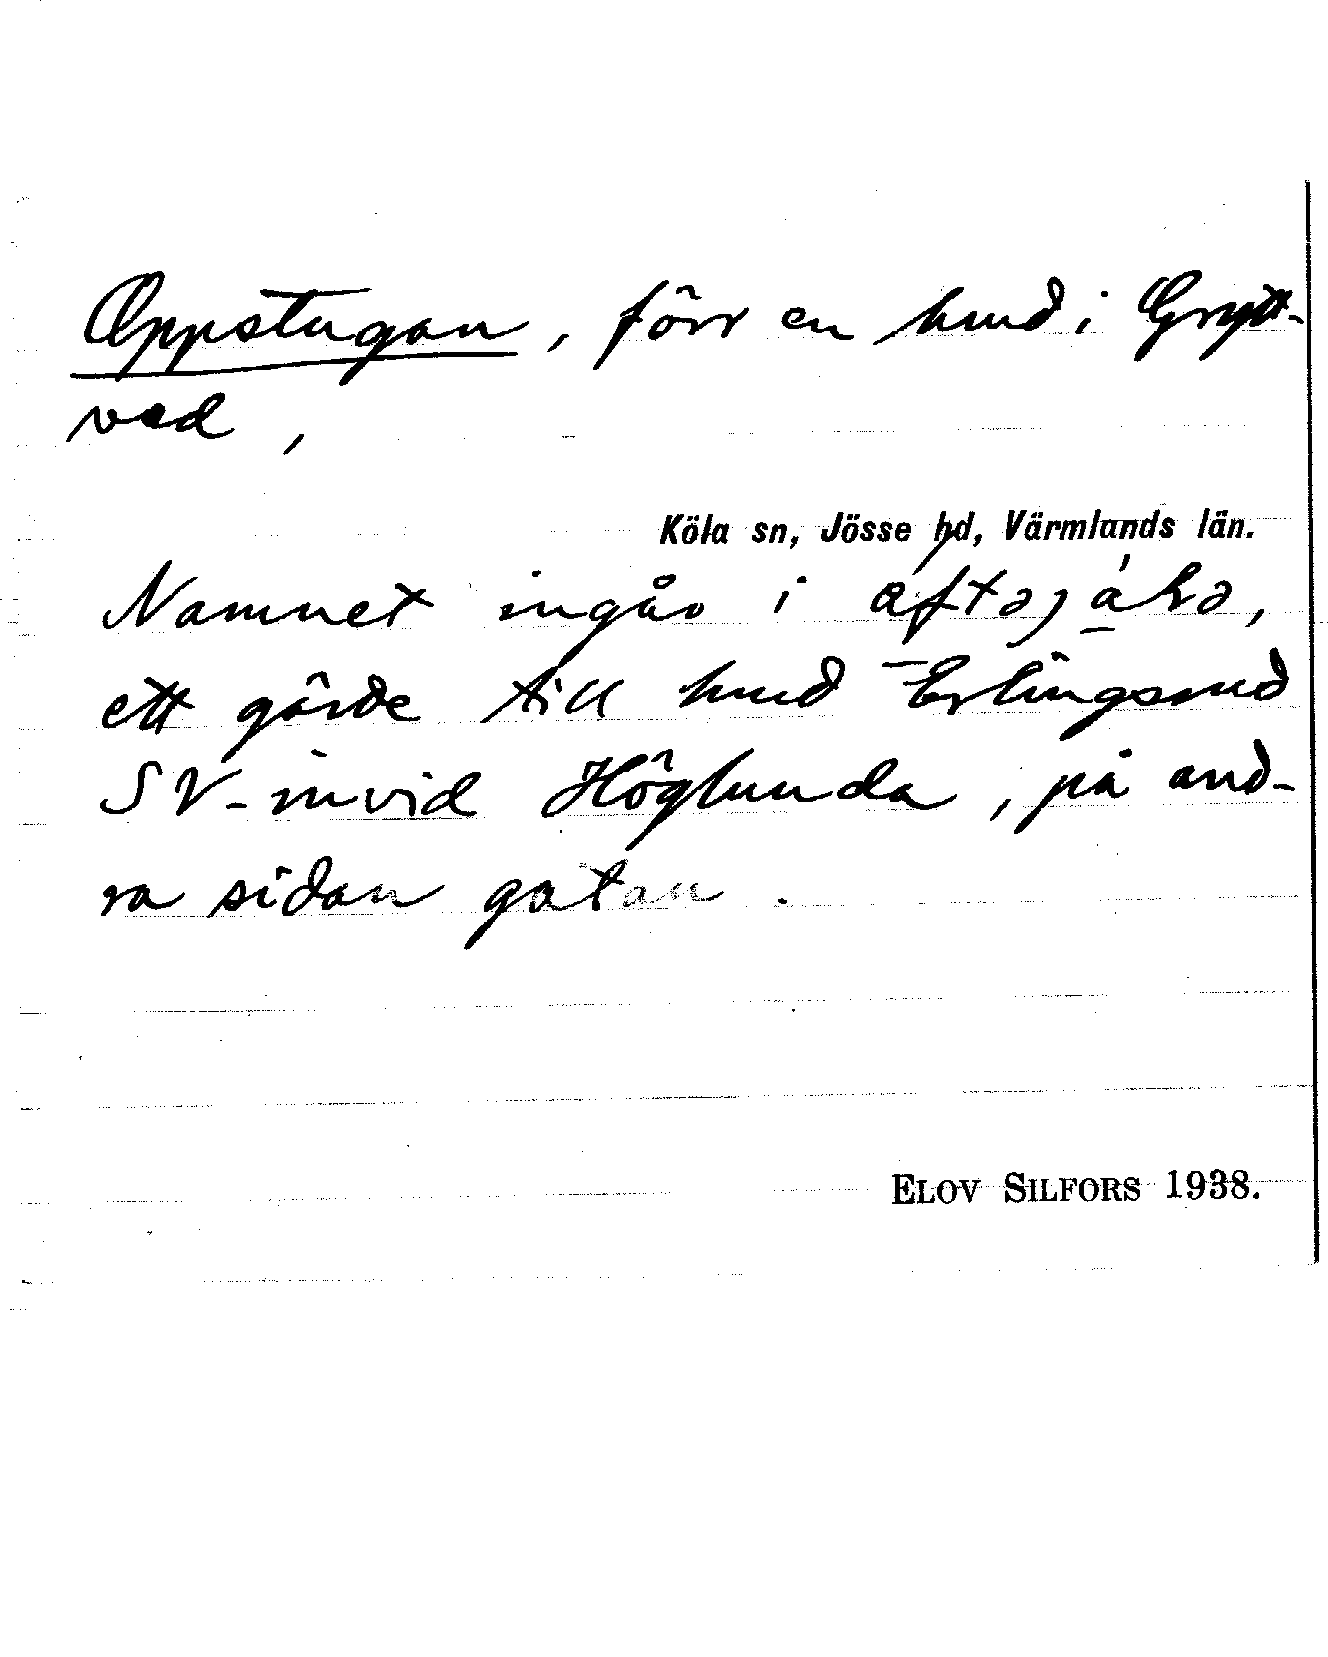 Oppstugan, förr en hmd i Grytt-
ved,
Köla sn, Jösse hd, Värmlands län.
Namnet ingår i
ett gärde till hmd Erlingsrud
SV-invid Höglunda, på and-
ra sidan gatan.
ELOV SILFORS 1938.